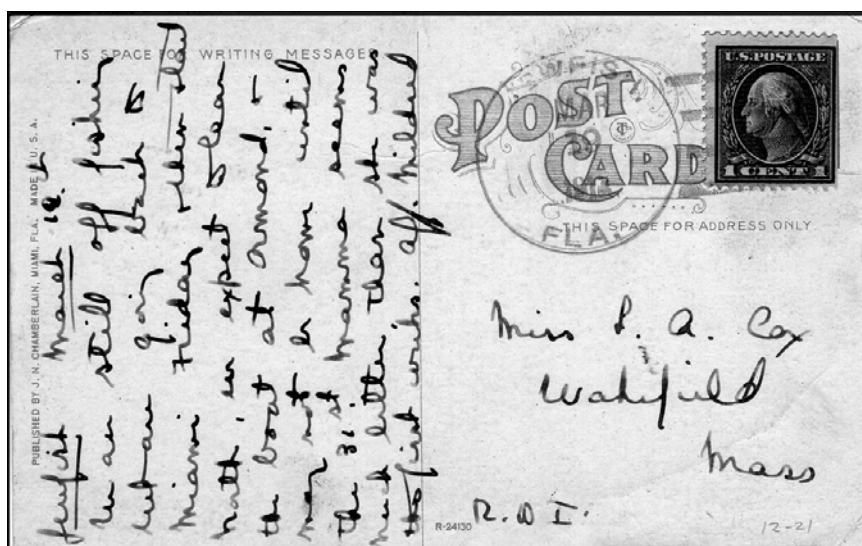 THIS SPACE FOR WRITING MESSAGES
PUBLISHED BY J. N. CHAMBERLAIN, MIAMI, FLA. MADE U. S. A.
Jewfish March 19.
We are still off fishing
but are going back to
Miami Friday then start
North. we expect to leave
the boat at Ormond, +
may not be home until
the 31st Mamma seems
much better than she was
the first weeks. aff. Mildred
POST
CARD
JEWFISH
MAR
FLA.
U.S. POSTAGE
1 CENT 1
THIS SPACE FOR ADDRESS ONLY
Miss L. A. Cox
Wakefield
Mass
R. D I.
R-24130
12-21